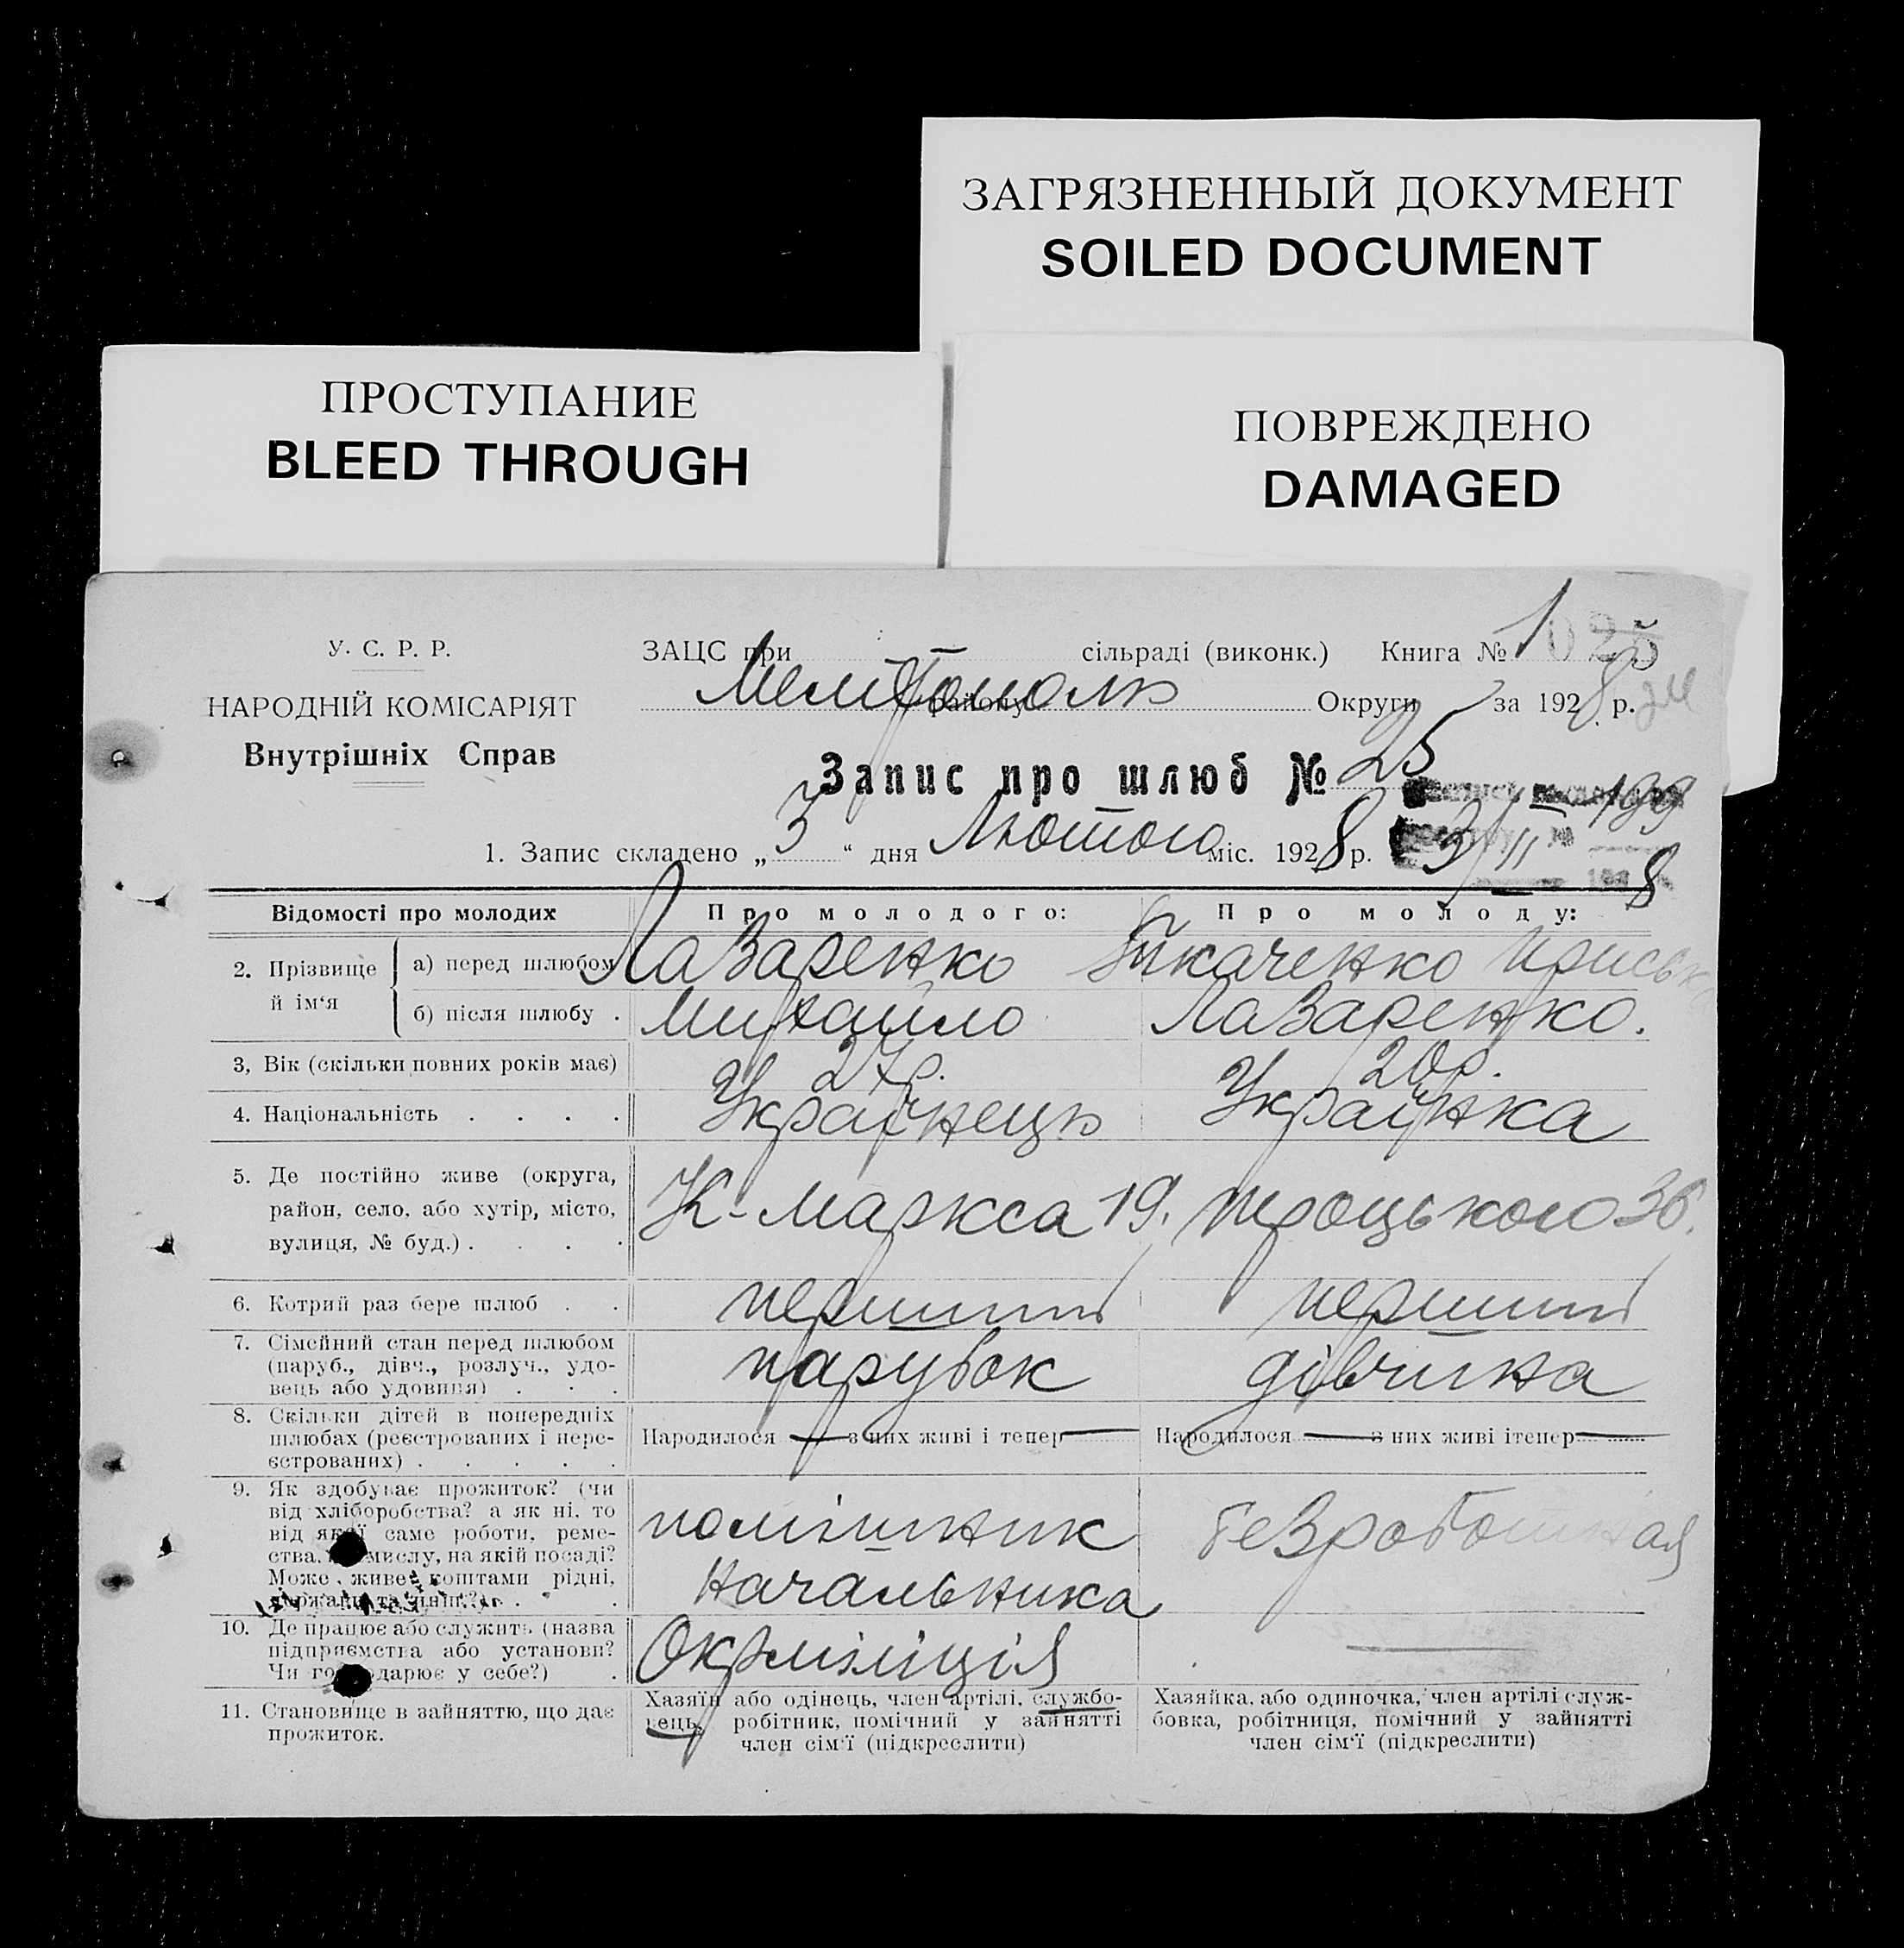 ЗАГРЯЗНЕННЫЙ ДОКУМЕНТ
SOILED DOCUMENT
ПРОСТУПАНИЕ
BLEED THROUGH
ПОВРЕЖДЕНО
DAMAGED
У. С. Р. Р.
НАРОДНІЙ КОМІСАРІЯТ
Внутрішніх Справ
ЗАЦС при сільраді (виконк.) Книга № 1 025
Мелітополь району Округи за 1928 р. 24
Запис про шлюб № 25
199
1. Запис складено „3“ дня Лютого міс. 1928 р. 3/II 8
Відомості про молодих
Про молодого:
Про молоду:
2. Прізвище й ім'я
а) перед шлюбом Лазаренко Ткаченко Приська
б) після шлюбу . Михайло Лазаренко.
3, Вік (скільки повних років має) 27 р. 20 р.
4. Національність . . . . Українець Українка
5. Де постійно живе (округа,
район, село, або хутір, місто,
вулиця, № буд.) . . . .
К-Маркса 19. Троцького 36.
6. Котрий раз бере шлюб . . перший перший
7. Сімейний стан перед шлюбом
(паруб., дівч., розлуч., удо-
вець або удовиця) . . .
парубок дівчина
8. Скільки дітей в попередніх
шлюбах (реєстрованих і нере-
єстрованих) . . . . .
Народилося — з них живі і тепер —
Народилося — з них живі ітепер —
9. Як здобуває прожиток? (чи
від хліборобства? а як ні, то
від якої саме роботи, реме-
ства, мислу, на якій посаді?
Може живе коштами рідні,
помішник
начальника
безработная
10. Де працює або служить (назва
підприємства або установи?
Чи господарює у себе?) .
Окрміліція —
11. Становище в зайняттю, що дає
прожиток.
Хазяїн або одінець, член артілі, службо-
вець, робітник, помічний у зайнятті
член сім'ї (підкреслити)
Хазяйка, або одиночка, член артілі служ-
бовка, робітниця, помічний у зайнятті
член сім'ї (підкреслити)